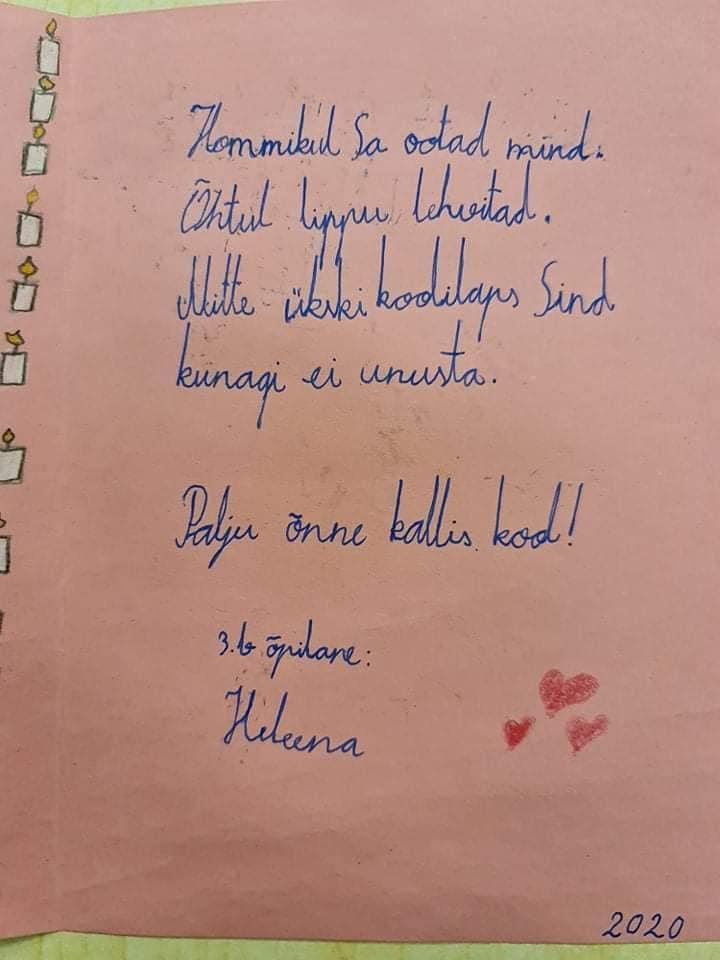 Hommikul Sa ootad mind.
Õhtul lippu lehvitad.
Mitte ükski koolilaps Sind
kunagi ei unusta.
Palju õnne kallis kool!
3.b õpilane:
Heleena
2020